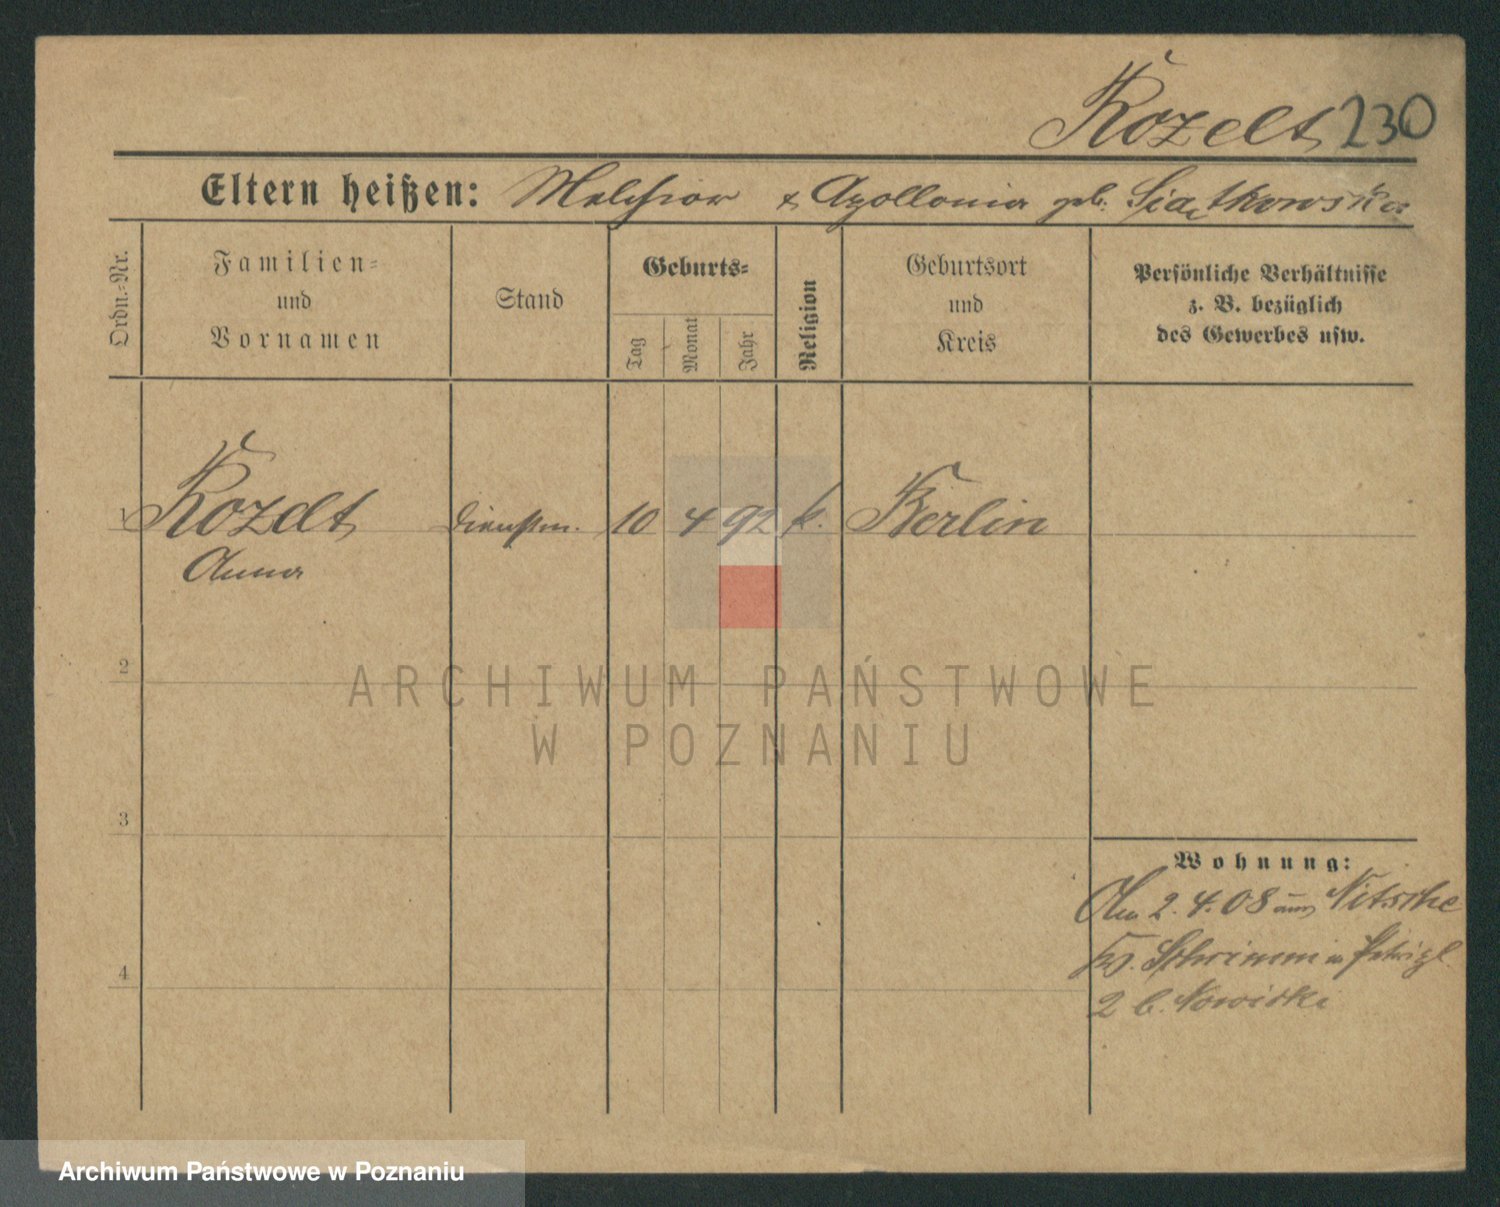 Rozelt 230
Eltern heißen: Melchior & Apollonia geb. Siątkowska
Ordn.-Nr.
Familien-
und
Vornamen
Stand
Geburts-
Tag
Monat
Jahr
Religion
Geburtsort
und
Kreis
Persönliche Verhältnisse
z. B. bezüglich
des Gewerbes usw.
1 Rozelt Dienstm. 10 4 92 k. Berlin
Anna
2
3
4
Wohnung:
2. 4. 08 Nitsche
Schrimm in
2 b. Nowicki
ARCHIWUM PAŃSTWOWE
W POZNANIU
Archiwum Państwowe w Poznaniu